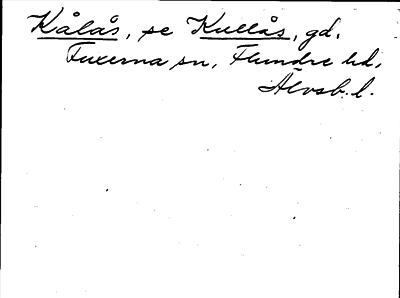 Kålås, se Kullås, gd,
Fuxerna sn, Flundre hd,
Älvsb. l.